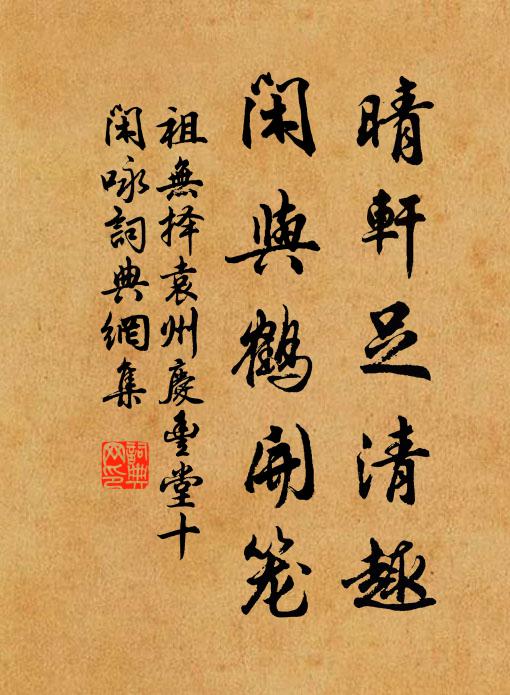 晴軒足清趣
閑與鶴開笼
祖無择袁州慶豊堂十
閑咏詞典網集
詞典网印